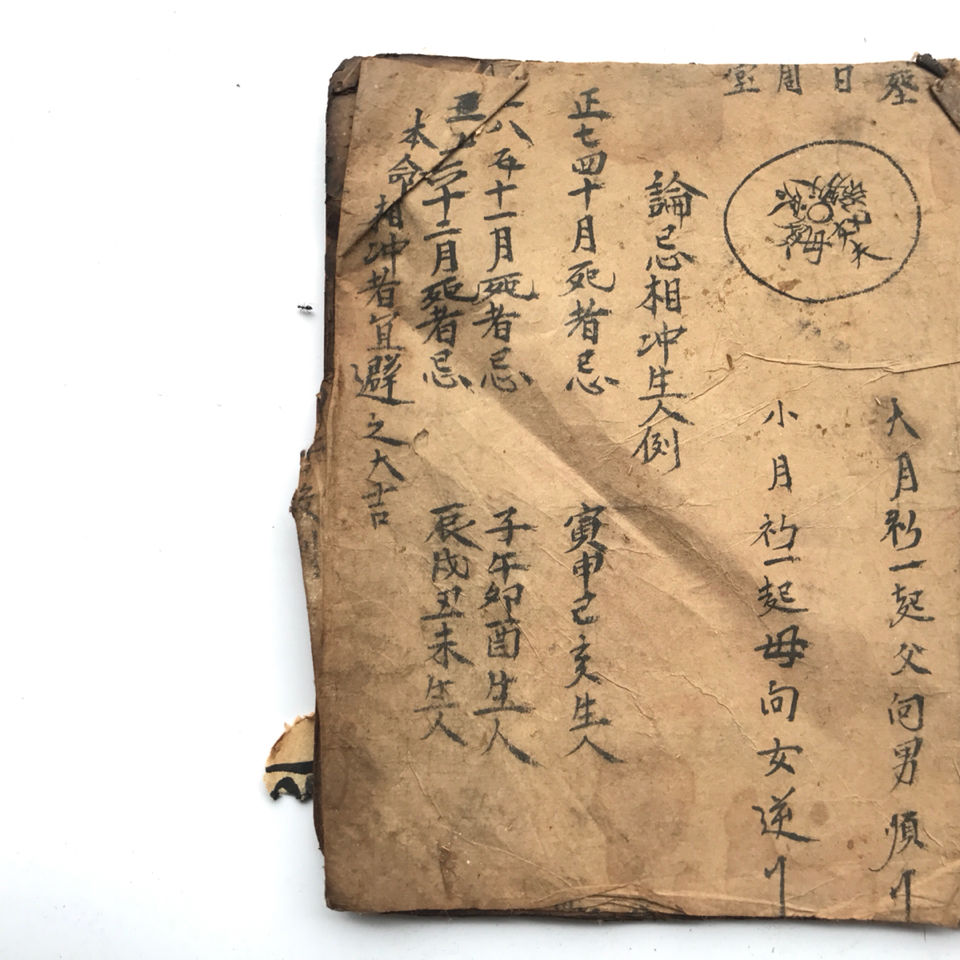 塟日周堂
母
大月初一起父向男順行
小月初一起母向女逆行
論忌相冲生人例
正七四十月死者忌 寅申巳亥生人
八五十一月死者忌 子午卯酉生人
六十二月死者忌 辰戌丑未生人
本命相冲者宜避之大吉